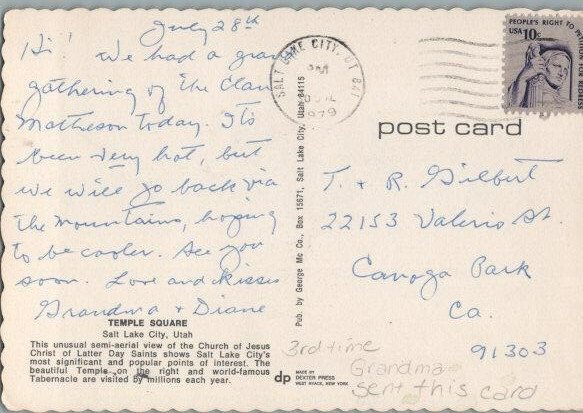 July 28th
Hi! We had a gran
gathering of The Clan
Matheson Today. Its
been very hot, but
we will go back via
The Mountains, hoping
to be cooler. See you
soon. Love and kisses
Grandma + Diane
TEMPLE SQUARE
Salt Lake City, Utah
This unusual semi-aerial view of the Church of Jesus
Christ of Latter Day Saints shows Salt Lake City's
most significant and popular points of interest. The
beautiful Temple on the right and world-famous
Tabernacle are visited by millions each year.
Pub. by George Mc Co., Box 15671, Salt Lake City, Utah 84115
dp
MADE BY
DEXTER PRESS
WEST NYACK, NEW YORK
SALT LAKE CITY, UT 841
PM
1979
PEOPLE'S RIGHT TO
USA 10c
post card
T. + R. Gilbert
22153 Valerio St.
Canoga Park
Ca.
91303
3rd time
Grandma
sent this card